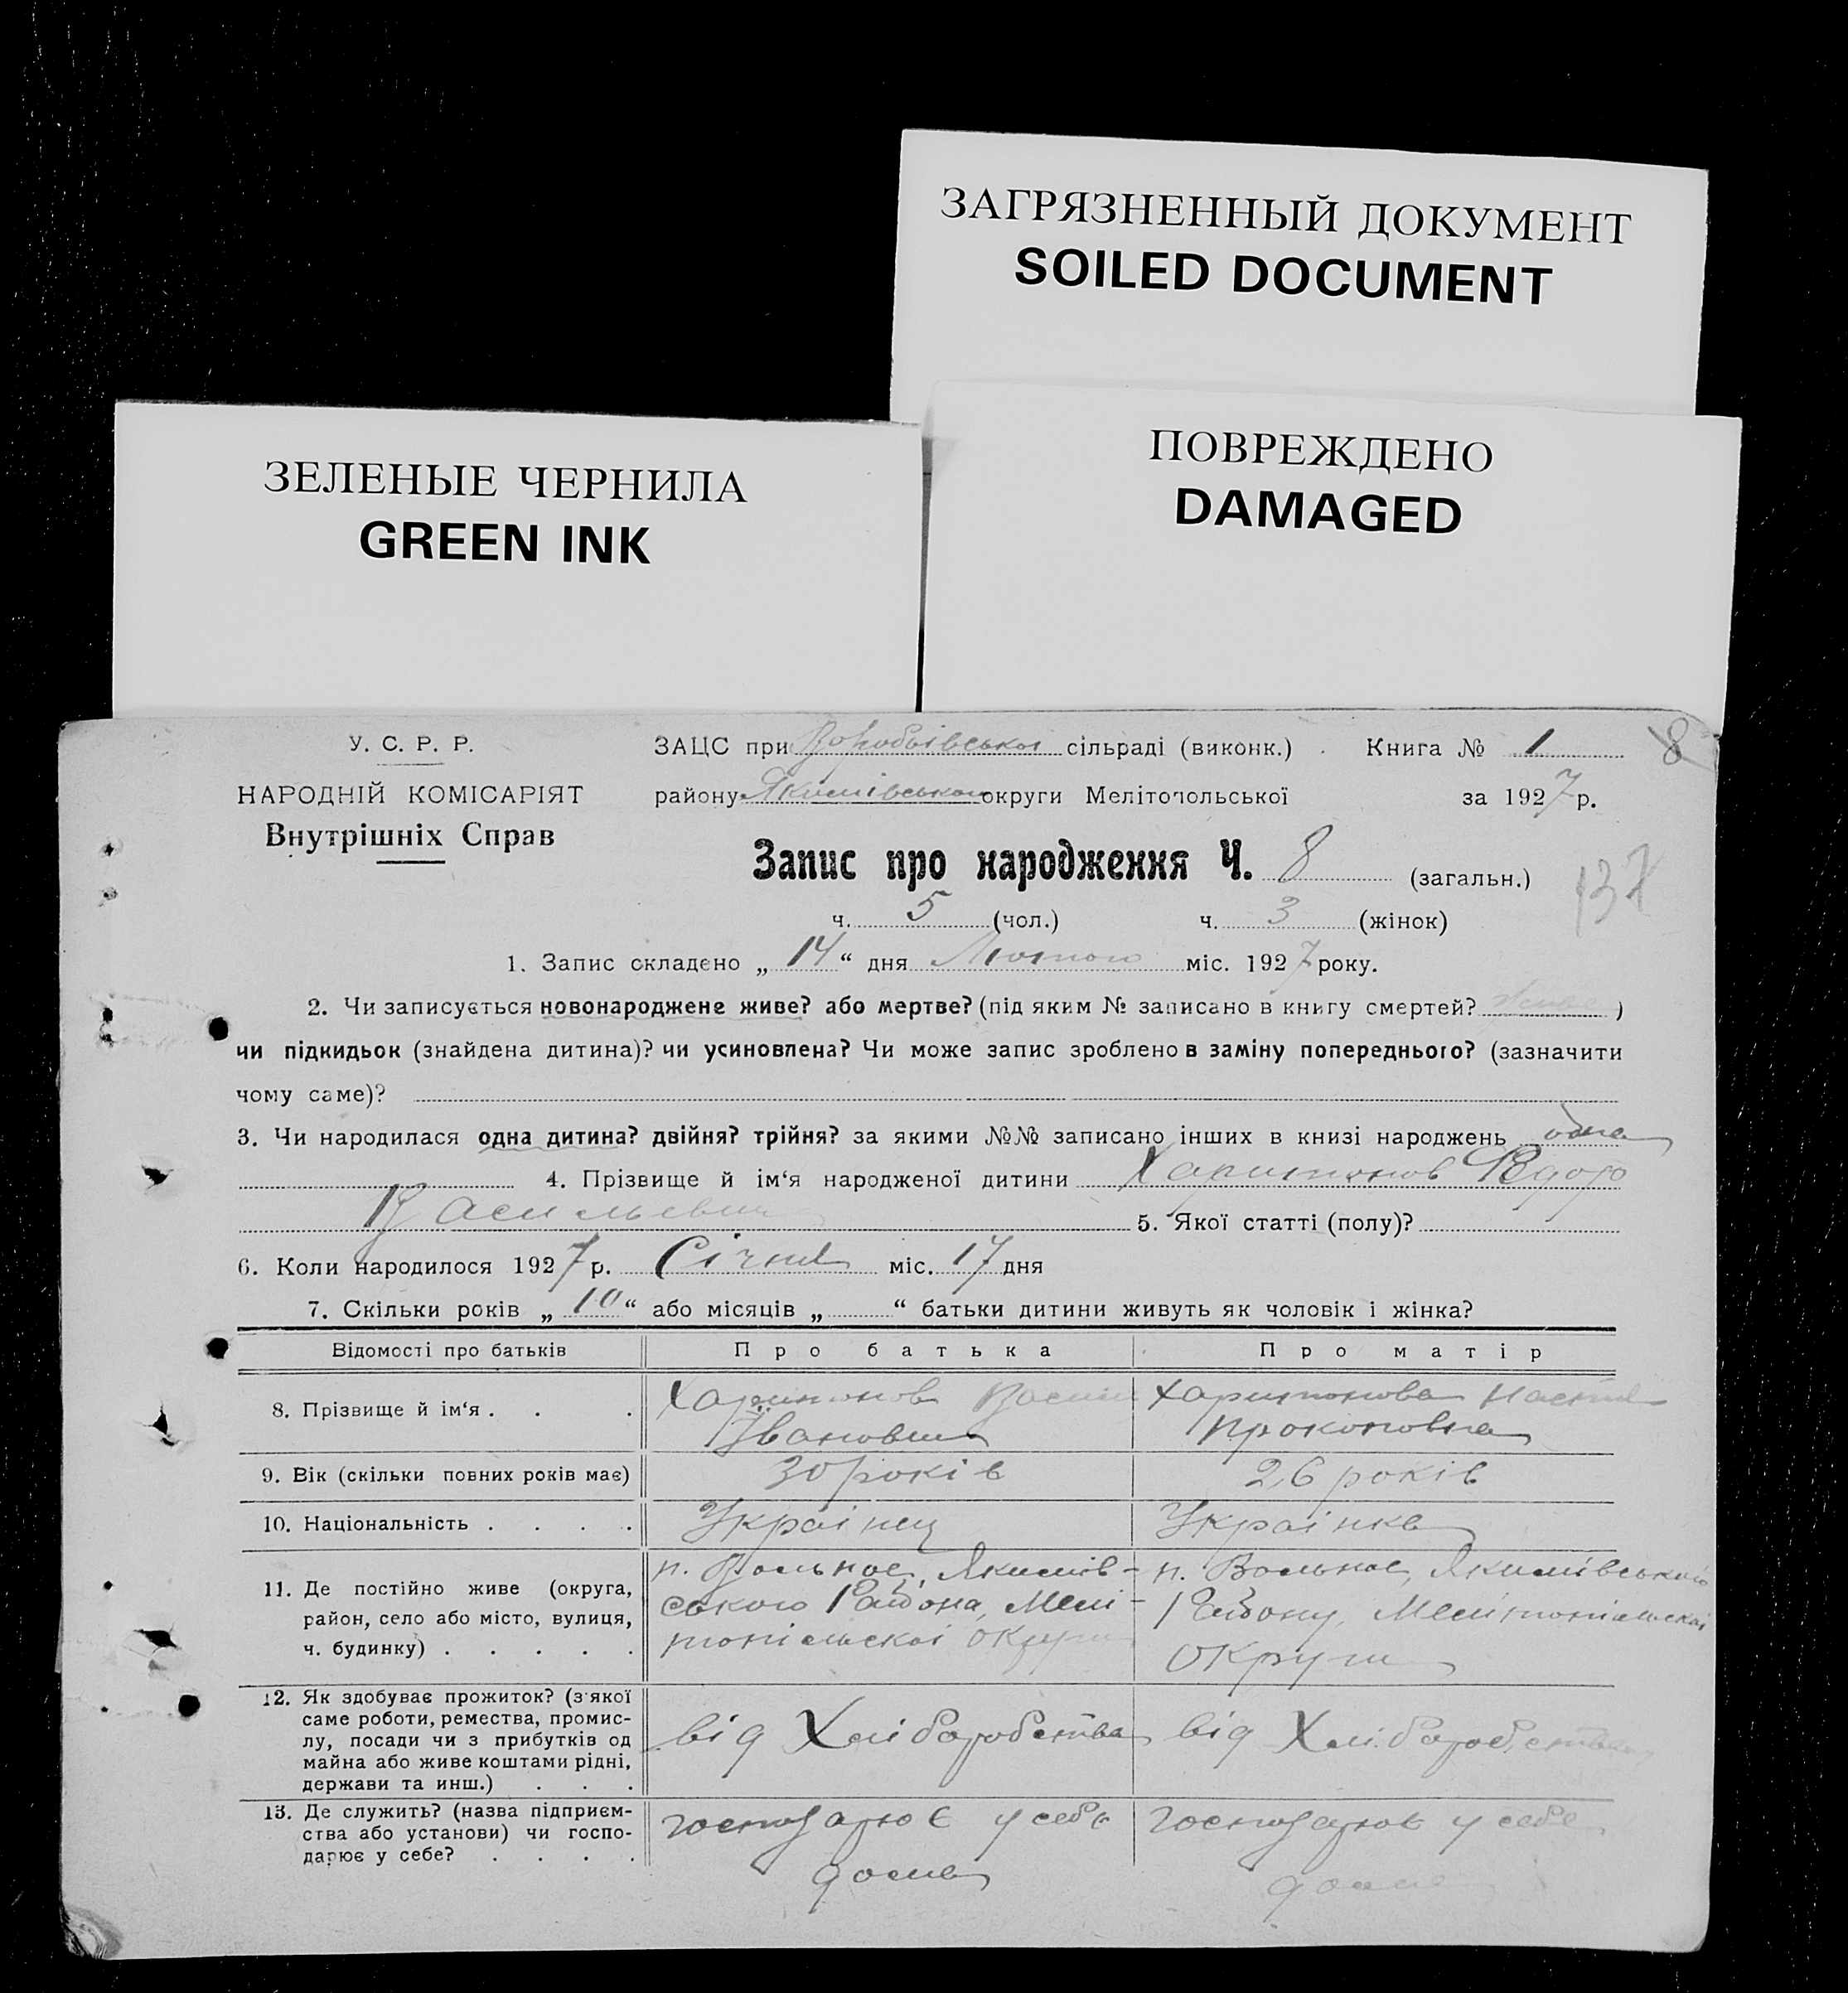 ЗАГРЯЗНЕННЫЙ ДОКУМЕНТ
SOILED DOCUMENT
ЗЕЛЕНЫЕ ЧЕРНИЛА
GREEN INK
ПОВРЕЖДЕНО
DAMAGED
У. С. Р. Р.
НАРОДНІЙ КОМІСАРІЯТ
Внутрішніх Справ
ЗАЦС при Воробьівської сільраді (виконк.) Книга № 1
8
району Якимівського округи Мелітопольської за 1927 р.
Запис про народження Ч. 8 (загальн.)
137
ч. 5 (чол.) ч. 3 (жінок)
1. Запис складено „ 14 “ дня Лютого міс. 1927 року.
2. Чи записується новонароджене живе? або мертве? (під яким № записано в книгу смертей? живе )
чи підкидьок (знайдена дитина)? чи усиновлена? Чи може запис зроблено в заміну попереднього? (зазначити
чому саме)?
3. Чи народилася одна дитина? двійня? трійня? за якими №№ записано інших в книзі народжень одна
4. Прізвище й ім‘я народженої дитини Харитонов Федор
Васильевич 5. Якої статті (полу)?
6. Коли народилося 1927 р. Січня міс. 17 дня
7. Скільки років „ 10 “ або місяців „ “ батьки дитини живуть як чоловік і жінка?
Відомості про батьків Про батька Про матір
8. Прізвище й ім‘я . . . Харитонов Васил Харитонова Настя
Іванович Прокоповна
9. Вік (скільки повних років має) 30 років 26 років
10. Національність . . . . Украінец Украінка
11. Де постійно живе (округа, район, село або місто, вулиця, ч. будинку) . . . . .
п. Вольное, Якимів-
ського Района, Мелі-
топільскоі округи
п. Вольное, Якимівського
Району, Мелітопільскоі
округи
12. Як здобуває прожиток? (з якої
саме роботи, ремества, промис-
лу, посади чи з прибутків од
майна або живе коштами рідні,
держави та инш.) . . .
від Хліборобства від Хліборобства
13. Де служить? (назва підприєм-
ства або установи) чи госпо-
дарює у себе? . . . .
господарює у себе
дома
господарює у себе
дома